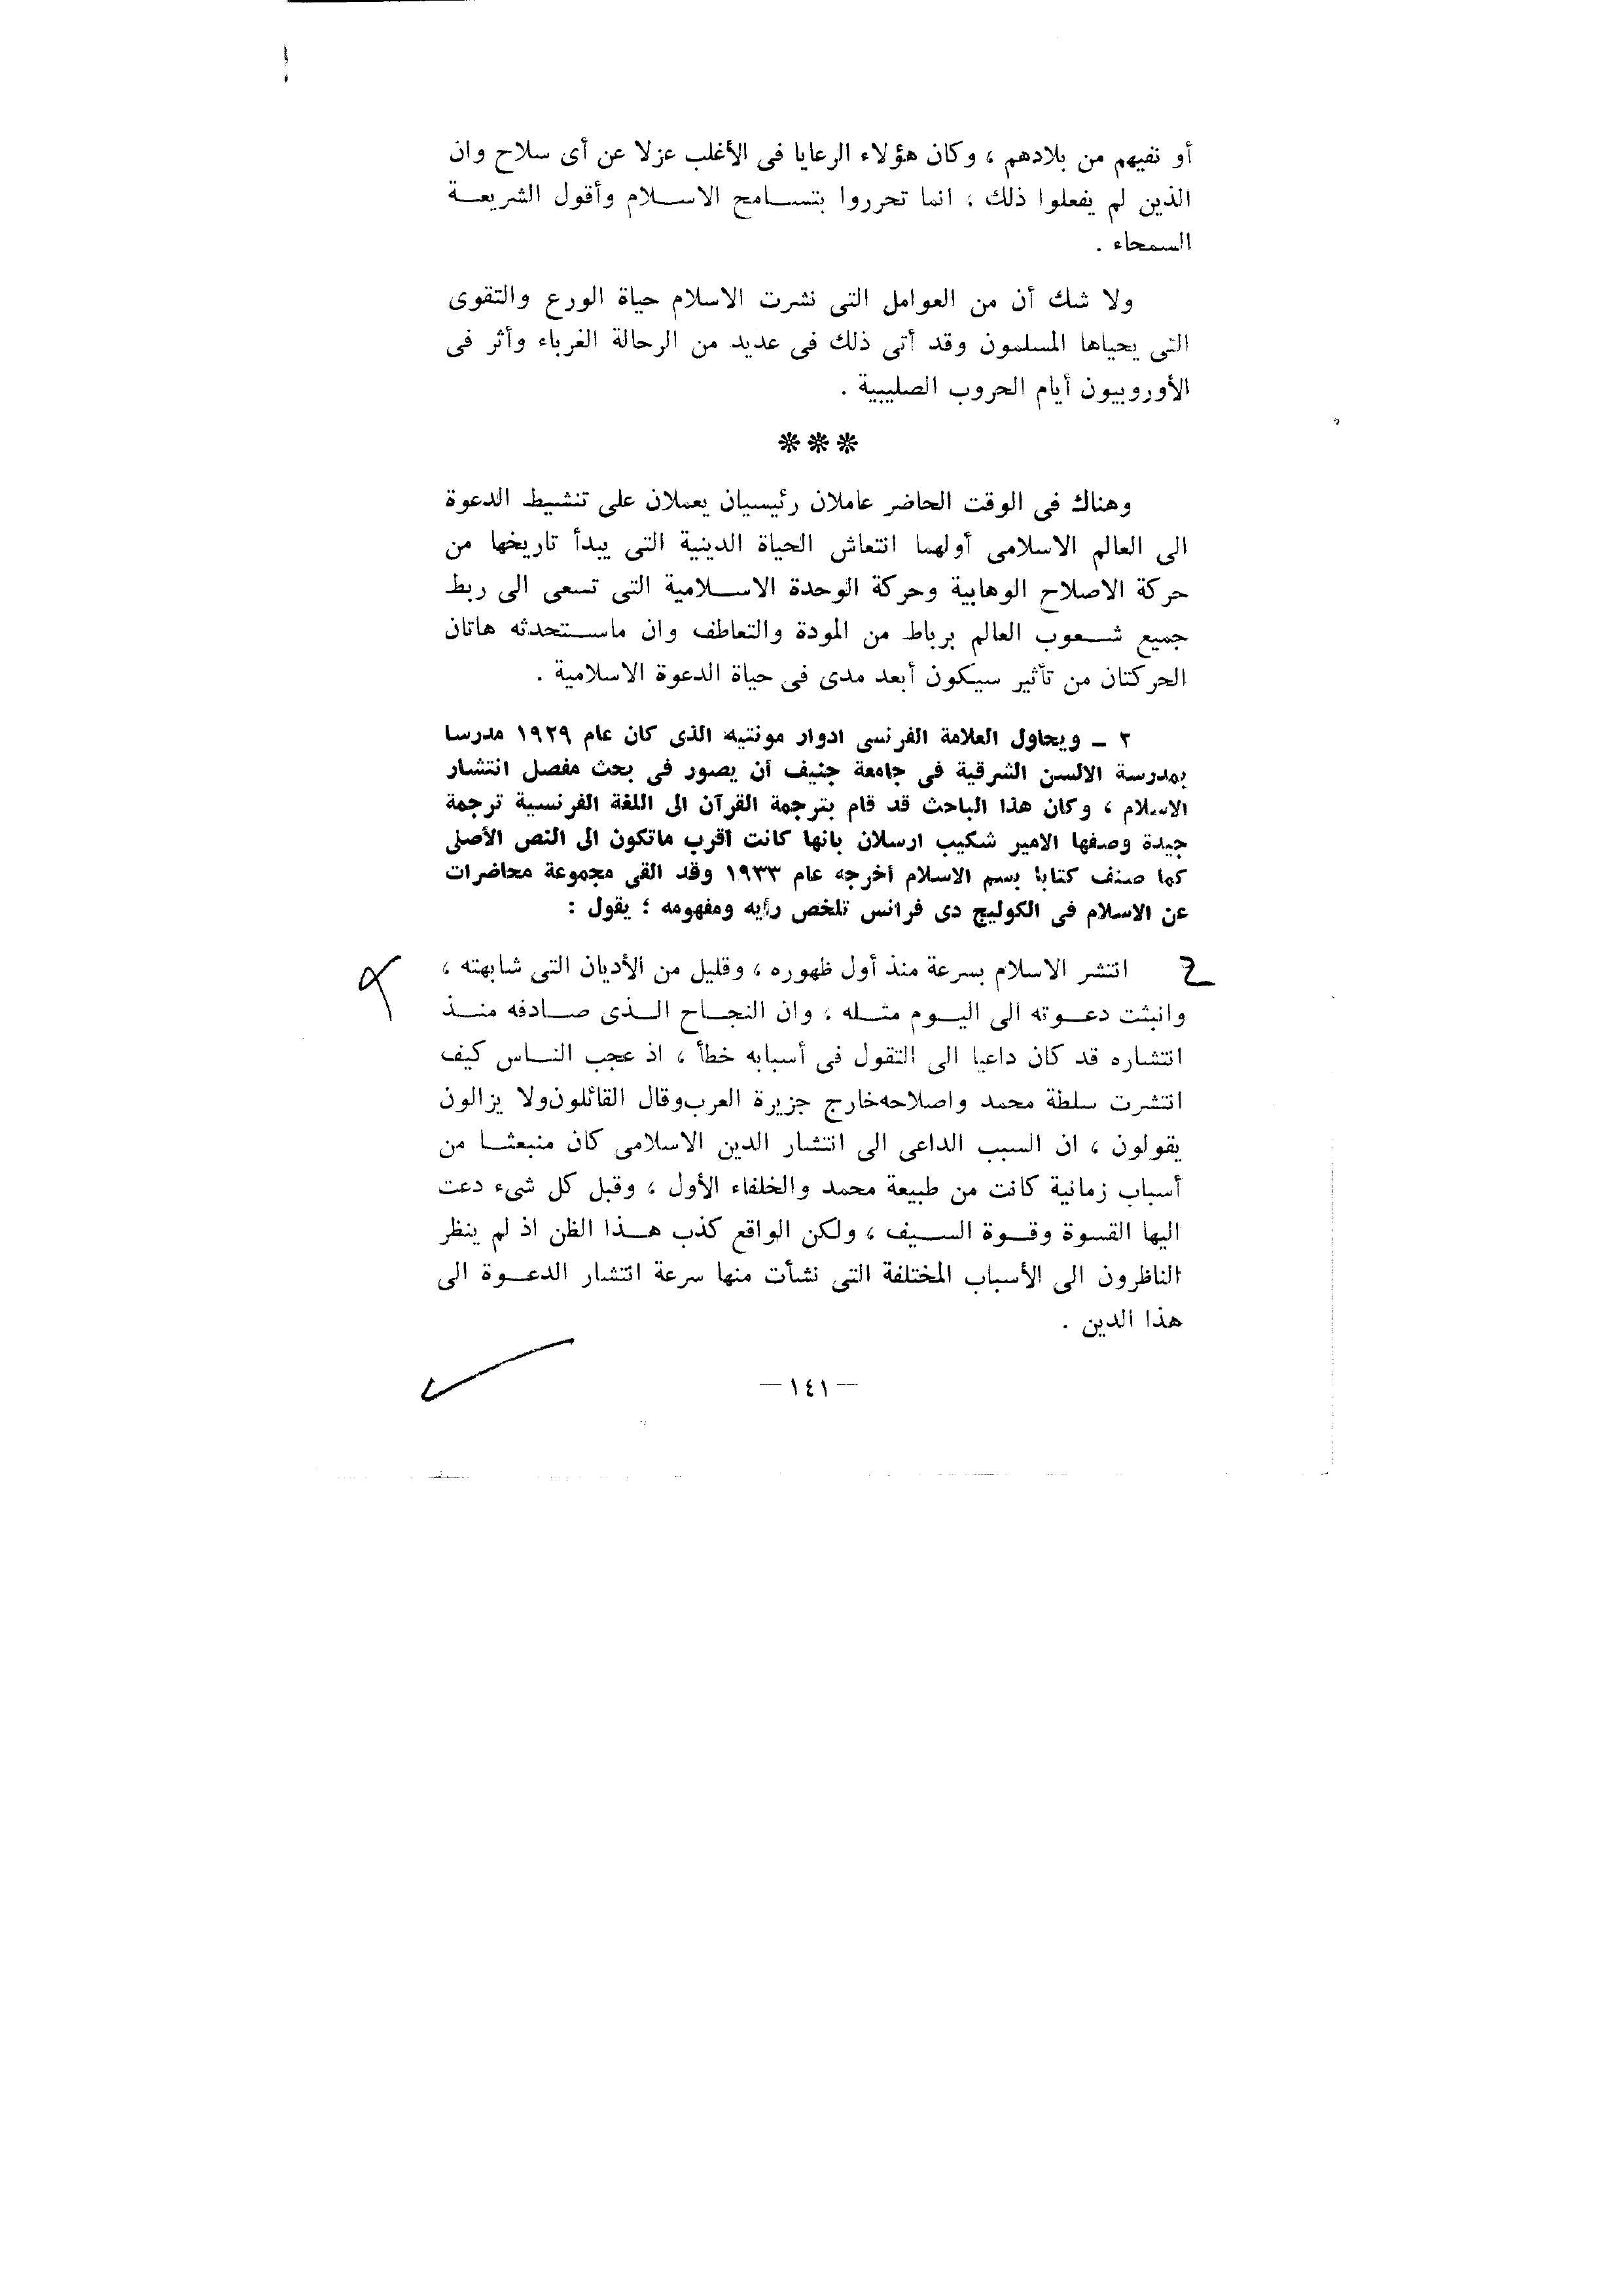 أو نفيهم من بلادهم ، وكان هؤلاء الرعايا فى الأغلب عزلا عن أى سلاح وان
الذين لم يفعلوا ذلك ، انما تحرروا بتسامح الاسلام وأقول الشريعة
السمحاء .
ولا شك أن من العوامل التى نشرت الاسلام حياة الورع والتقوى
التى يحياها المسلمون وقد أتى ذلك فى عديد من الرحالة الغرباء وأثر فى
الأوروبيون أيام الحروب الصليبية .
***
وهناك فى الوقت الحاضر عاملان رئيسيان يعملان على تنشيط الدعوة
الى العالم الاسلامى أولهما انتعاش الحياة الدينية التى يبدأ تاريخها من
حركة الاصلاح الوهابية وحركة الوحدة الاسلامية التى تسعى الى ربط
جميع شعوب العالم برباط من المودة والتعاطف وان ماستحدثه هاتان
الحركتان من تأثير سيكون أبعد مدى فى حياة الدعوة الاسلامية .
٢ ــ ويحاول العلامة الفرنسى ادوار مونتيه الذى كان عام ١٩٢٩ مدرسا
بمدرسة الالسن الشرقية فى جامعة جنيف أن يصور فى بحث مفصل انتشار
الاسلام ، وكان هذا الباحث قد قام بترجمة القرآن الى اللغة الفرنسية ترجمة
جيدة وصفها الامير شكيب ارسلان بانها كانت أقرب ماتكون الى النص الأصلى
كما صنف كتابا بسم الاسلام أخرجه عام ١٩٣٣ وقد القى مجموعة محاضرات
عن الاسلام فى الكوليج دى فرانس تلخص رأيه ومفهومه ؛ يقول :
انتشر الاسلام بسرعة منذ أول ظهوره ، وقليل من الأديان التى شابهته ،
وانبثت دعوته الى اليوم مثله ، وان النجاح الذى صادفه منذ
انتشاره قد كان داعيا الى التقول فى أسبابه خطأ ، اذ عجب الناس كيف
انتشرت سلطة محمد واصلاحه خارج جزيرة العرب وقال القائلون ولا يزالون
يقولون ، ان السبب الداعى الى انتشار الدين الاسلامى كان منبعثا من
أسباب زمانية كانت من طبيعة محمد والخلفاء الأول ، وقبل كل شىء دعت
اليها القسوة وقوة السيف ، ولكن الواقع كذب هذا الظن اذ لم ينظر
الناظرون الى الأسباب المختلفة التى نشأت منها سرعة انتشار الدعوة الى
هذا الدين .
— ١٤١ —